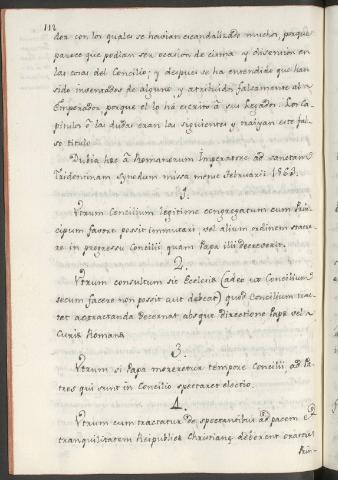 112
dos con los quales se havian escandalizado muchos, porque
parece que podian ser ocasion de cisma y dissension en
las cosas del Concilio; y despues se ha entendido que han
sido inventados de alguno y atribuidos falsamente al
Emperador, porque el lo há escrito á sus legados: Los Ca-
pitulos ò las dudas eran las siguientes y traìyan este fal-
so titulo
Dubia hæc á Romanorum Imperatore ad sanctam
Tridentinam Synodum missa mense Februarii 1563.
1.
Utrum Concilium legitime congregatum cum Prin-
cipum favore possit immutari vel alium ordinem stacue-
re in progressu Concilii quam Papa illi decreverit.
2.
Utrum consultum sit Eclesiæ (adeo ut Concilium
secum facere non possit aut debeat) quod Concilium trac-
tet ac practanda decernat absque directione Papæ vel
Curiæ Romanæ
3.
Utrum si Papa moreretur tempore Concilii, ad Pa-
tres qui sunt in Concilio spectaret electio.
4.
Utrum cum tractatur de spectantibus ad pacem et
tranquilitatem Reipublicæ Christianę deberent oratores
Prin-